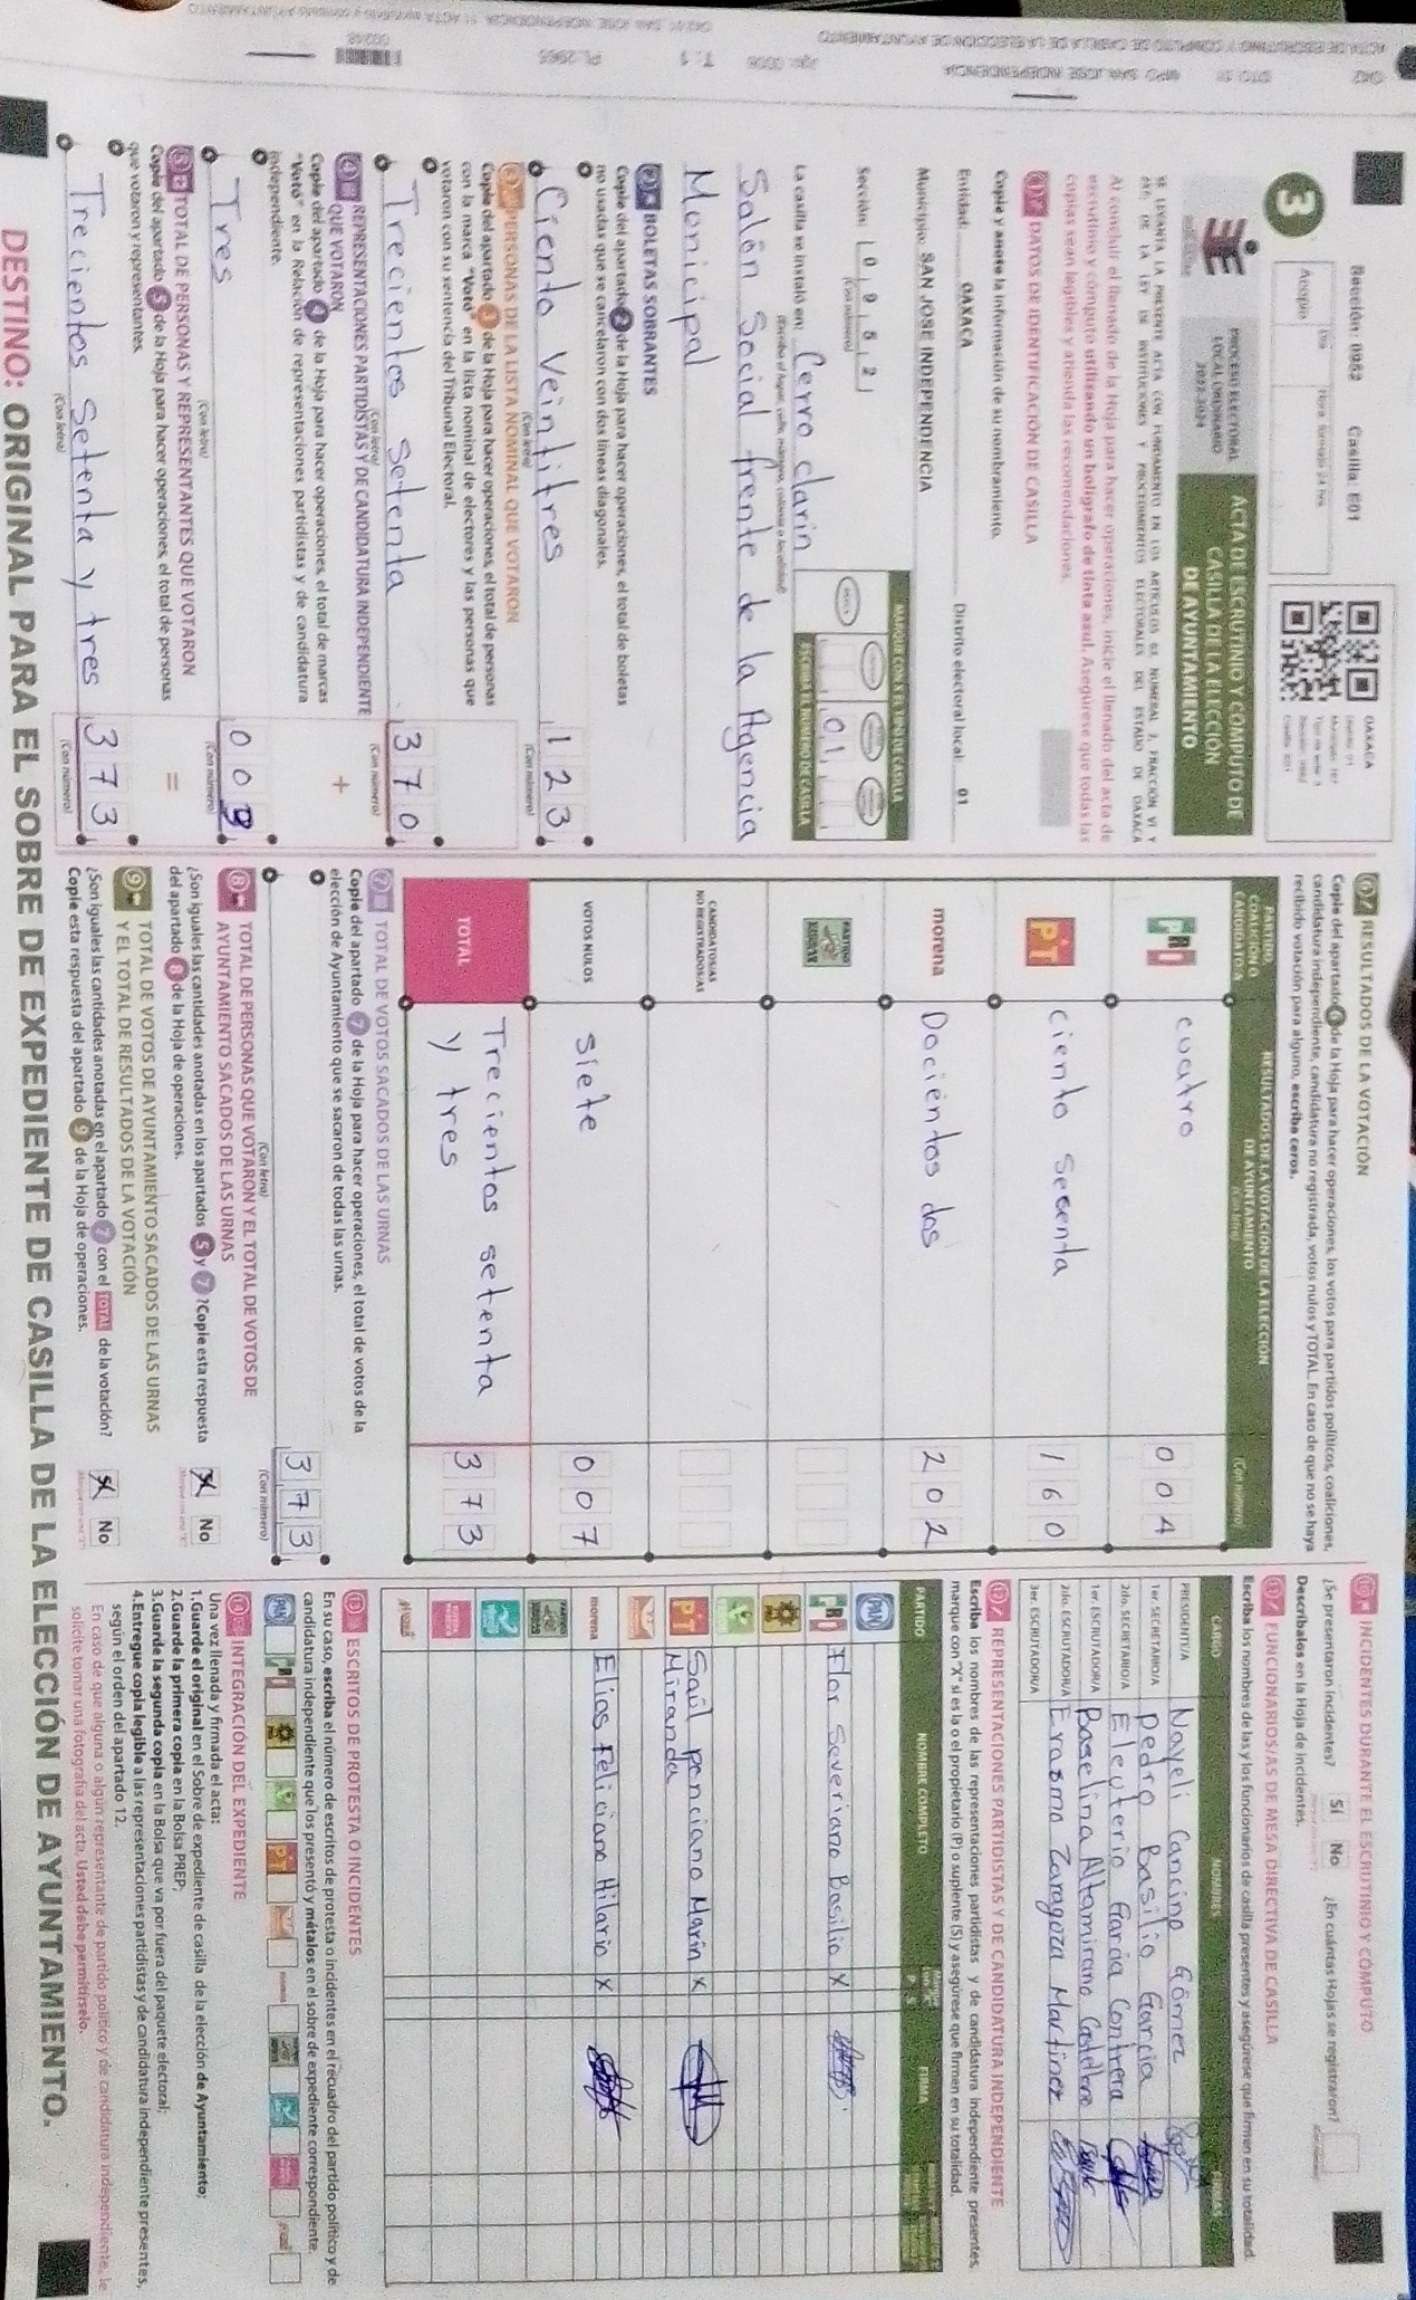 Sección: 0952 Casilla: E01
Día Hora: formato 24 hrs
Acopio
3
OAXACA
PROCESO ELECTORAL
LOCAL ORDINARIO
2023-2024
ACTA DE ESCRUTINIO Y CÓMPUTO DE
CASILLA DE LA ELECCIÓN
DE AYUNTAMIENTO
SE LEVANTA LA PRESENTE ACTA CON FUNDAMENTO EN LOS ARTÍCULOS
DE LA LEY DE INSTITUCIONES Y PROCEDIMIENTOS ELECTORALES DEL ESTADO DE OAXACA
Al concluir el llenado de la Hoja para hacer operaciones, inicie el llenado del acta de
escrutinio y cómputo utilizando un bolígrafo de tinta azul. Asegúrese que todas las
copias sean legibles y atienda las recomendaciones.
1 DATOS DE IDENTIFICACIÓN DE CASILLA
Copie y anote la información de su nombramiento.
Entidad: OAXACA Distrito electoral local: 01
Municipio: SAN JOSE INDEPENDENCIA
MARQUE CON X EL TIPO DE CASILLA
Sección: 0 9 5 2
(Con número)
01
ESCRIBA EL NÚMERO DE CASILLA
La casilla se instaló en: Cerro clarin
(Escriba el lugar, calle, número, colonia o localidad)
Salón Social frente de la Agencia
Monicipal
2 BOLETAS SOBRANTES
Copie del apartado 2 de la Hoja para hacer operaciones, el total de boletas
no usadas que se cancelaron con dos líneas diagonales.
Ciento Veintitres 1 2 3
(Con letra) (Con número)
3 PERSONAS DE LA LISTA NOMINAL QUE VOTARON
Copie del apartado 3 de la Hoja para hacer operaciones, el total de personas
con la marca "Votó" en la lista nominal de electores y las personas que
votaron con su sentencia del Tribunal Electoral.
Trecientos setenta 3 7 0
(Con letra) (Con número)
4 REPRESENTACIONES PARTIDISTAS Y DE CANDIDATURA INDEPENDIENTE
QUE VOTARON +
Copie del apartado 4 de la Hoja para hacer operaciones, el total de marcas
"Votó" en la Relación de representaciones partidistas y de candidatura
independiente.
Tres 0 0 3
(Con letra) (Con número)
5 TOTAL DE PERSONAS Y REPRESENTANTES QUE VOTARON =
Copie del apartado 5 de la Hoja para hacer operaciones, el total de personas
que votaron y representantes.
Trecientos Setenta y tres 3 7 3
(Con letra) (Con número)
6 RESULTADOS DE LA VOTACIÓN
Copie del apartado 6 de la Hoja para hacer operaciones, los votos para partidos políticos, coaliciones,
candidatura independiente, candidatura no registrada, votos nulos y TOTAL. En caso de que no se haya
recibido votación para alguno, escriba ceros.
PARTIDO, COALICIÓN O CANDIDATO/A
RESULTADOS DE LA VOTACIÓN DE LA ELECCIÓN
DE AYUNTAMIENTO
(Con letra) (Con número)
PRI cuatro 0 0 4
PT ciento Secenta 1 6 0
morena Docientos dos 2 0 2
CANDIDATOS/AS
NO REGISTRADOS/AS
VOTOS NULOS siete 0 0 7
TOTAL Trecientos setenta
y tres 3 7 3
7 TOTAL DE VOTOS SACADOS DE LAS URNAS
Copie del apartado 7 de la Hoja para hacer operaciones, el total de votos de la
elección de Ayuntamiento que se sacaron de todas las urnas.
3 7 3
(Con letra) (Con número)
8 TOTAL DE PERSONAS QUE VOTARON Y EL TOTAL DE VOTOS DE
AYUNTAMIENTO SACADOS DE LAS URNAS
¿Son iguales las cantidades anotadas en los apartados 5 y 7? Copie esta respuesta
del apartado 8 de la Hoja de operaciones. X No
9 TOTAL DE VOTOS DE AYUNTAMIENTO SACADOS DE LAS URNAS
Y EL TOTAL DE RESULTADOS DE LA VOTACIÓN
¿Son iguales las cantidades anotadas en el apartado 7 con el TOTAL de la votación?
Copie esta respuesta del apartado 9 de la Hoja de operaciones. X No
10 INCIDENTES DURANTE EL ESCRUTINIO Y CÓMPUTO
¿Se presentaron incidentes? Sí No ¿En cuántas Hojas se registraron?
Descríbalos en la Hoja de incidentes.
11 FUNCIONARIOS/AS DE MESA DIRECTIVA DE CASILLA
Escriba los nombres de las y los funcionarios de casilla presentes y asegúrese que firmen en su totalidad.
CARGO NOMBRES FIRMAS
PRESIDENTE/A Nayeli Cancino Gómez
1er. SECRETARIO/A pedro Basilio Garcia
2do. SECRETARIO/A Eleuterio Garcia Contrera
1er. ESCRUTADOR/A Baselina Altamirano
2do. ESCRUTADOR/A Erasmo Zaragoza Martinez
3er. ESCRUTADOR/A
12 REPRESENTACIONES PARTIDISTAS Y DE CANDIDATURA INDEPENDIENTE
Escriba los nombres de las representaciones partidistas y de candidatura independiente presentes,
marque con "X" si es la o el propietario (P) o suplente (S) y asegúrese que firmen en su totalidad.
PARTIDO NOMBRE COMPLETO P S FIRMA
PAN
PRI Flor Severiano Basilio X
PT Saúl ponciano Marin X
Miranda
morena Elias Feliciano Hilario X
13 ESCRITOS DE PROTESTA O INCIDENTES
En su caso, escriba el número de escritos de protesta o incidentes en el recuadro del partido político y de
candidatura independiente que los presentó y métalos en el sobre de expediente correspondiente.
PAN PRI PT
14 INTEGRACIÓN DEL EXPEDIENTE
Una vez llenada y firmada el acta:
1.Guarde el original en el Sobre de expediente de casilla de la elección de Ayuntamiento;
2.Guarde la primera copia en la Bolsa PREP;
3.Guarde la segunda copia en la Bolsa que va por fuera del paquete electoral;
4.Entregue copia legible a las representaciones partidistas y de candidatura independiente presentes,
según el orden del apartado 12.
En caso de que alguna o algún representante de partido político y de candidatura independiente, le
solicite tomar una fotografía del acta, Usted debe permitírselo.
DESTINO: ORIGINAL PARA EL SOBRE DE EXPEDIENTE DE CASILLA DE LA ELECCIÓN DE AYUNTAMIENTO.